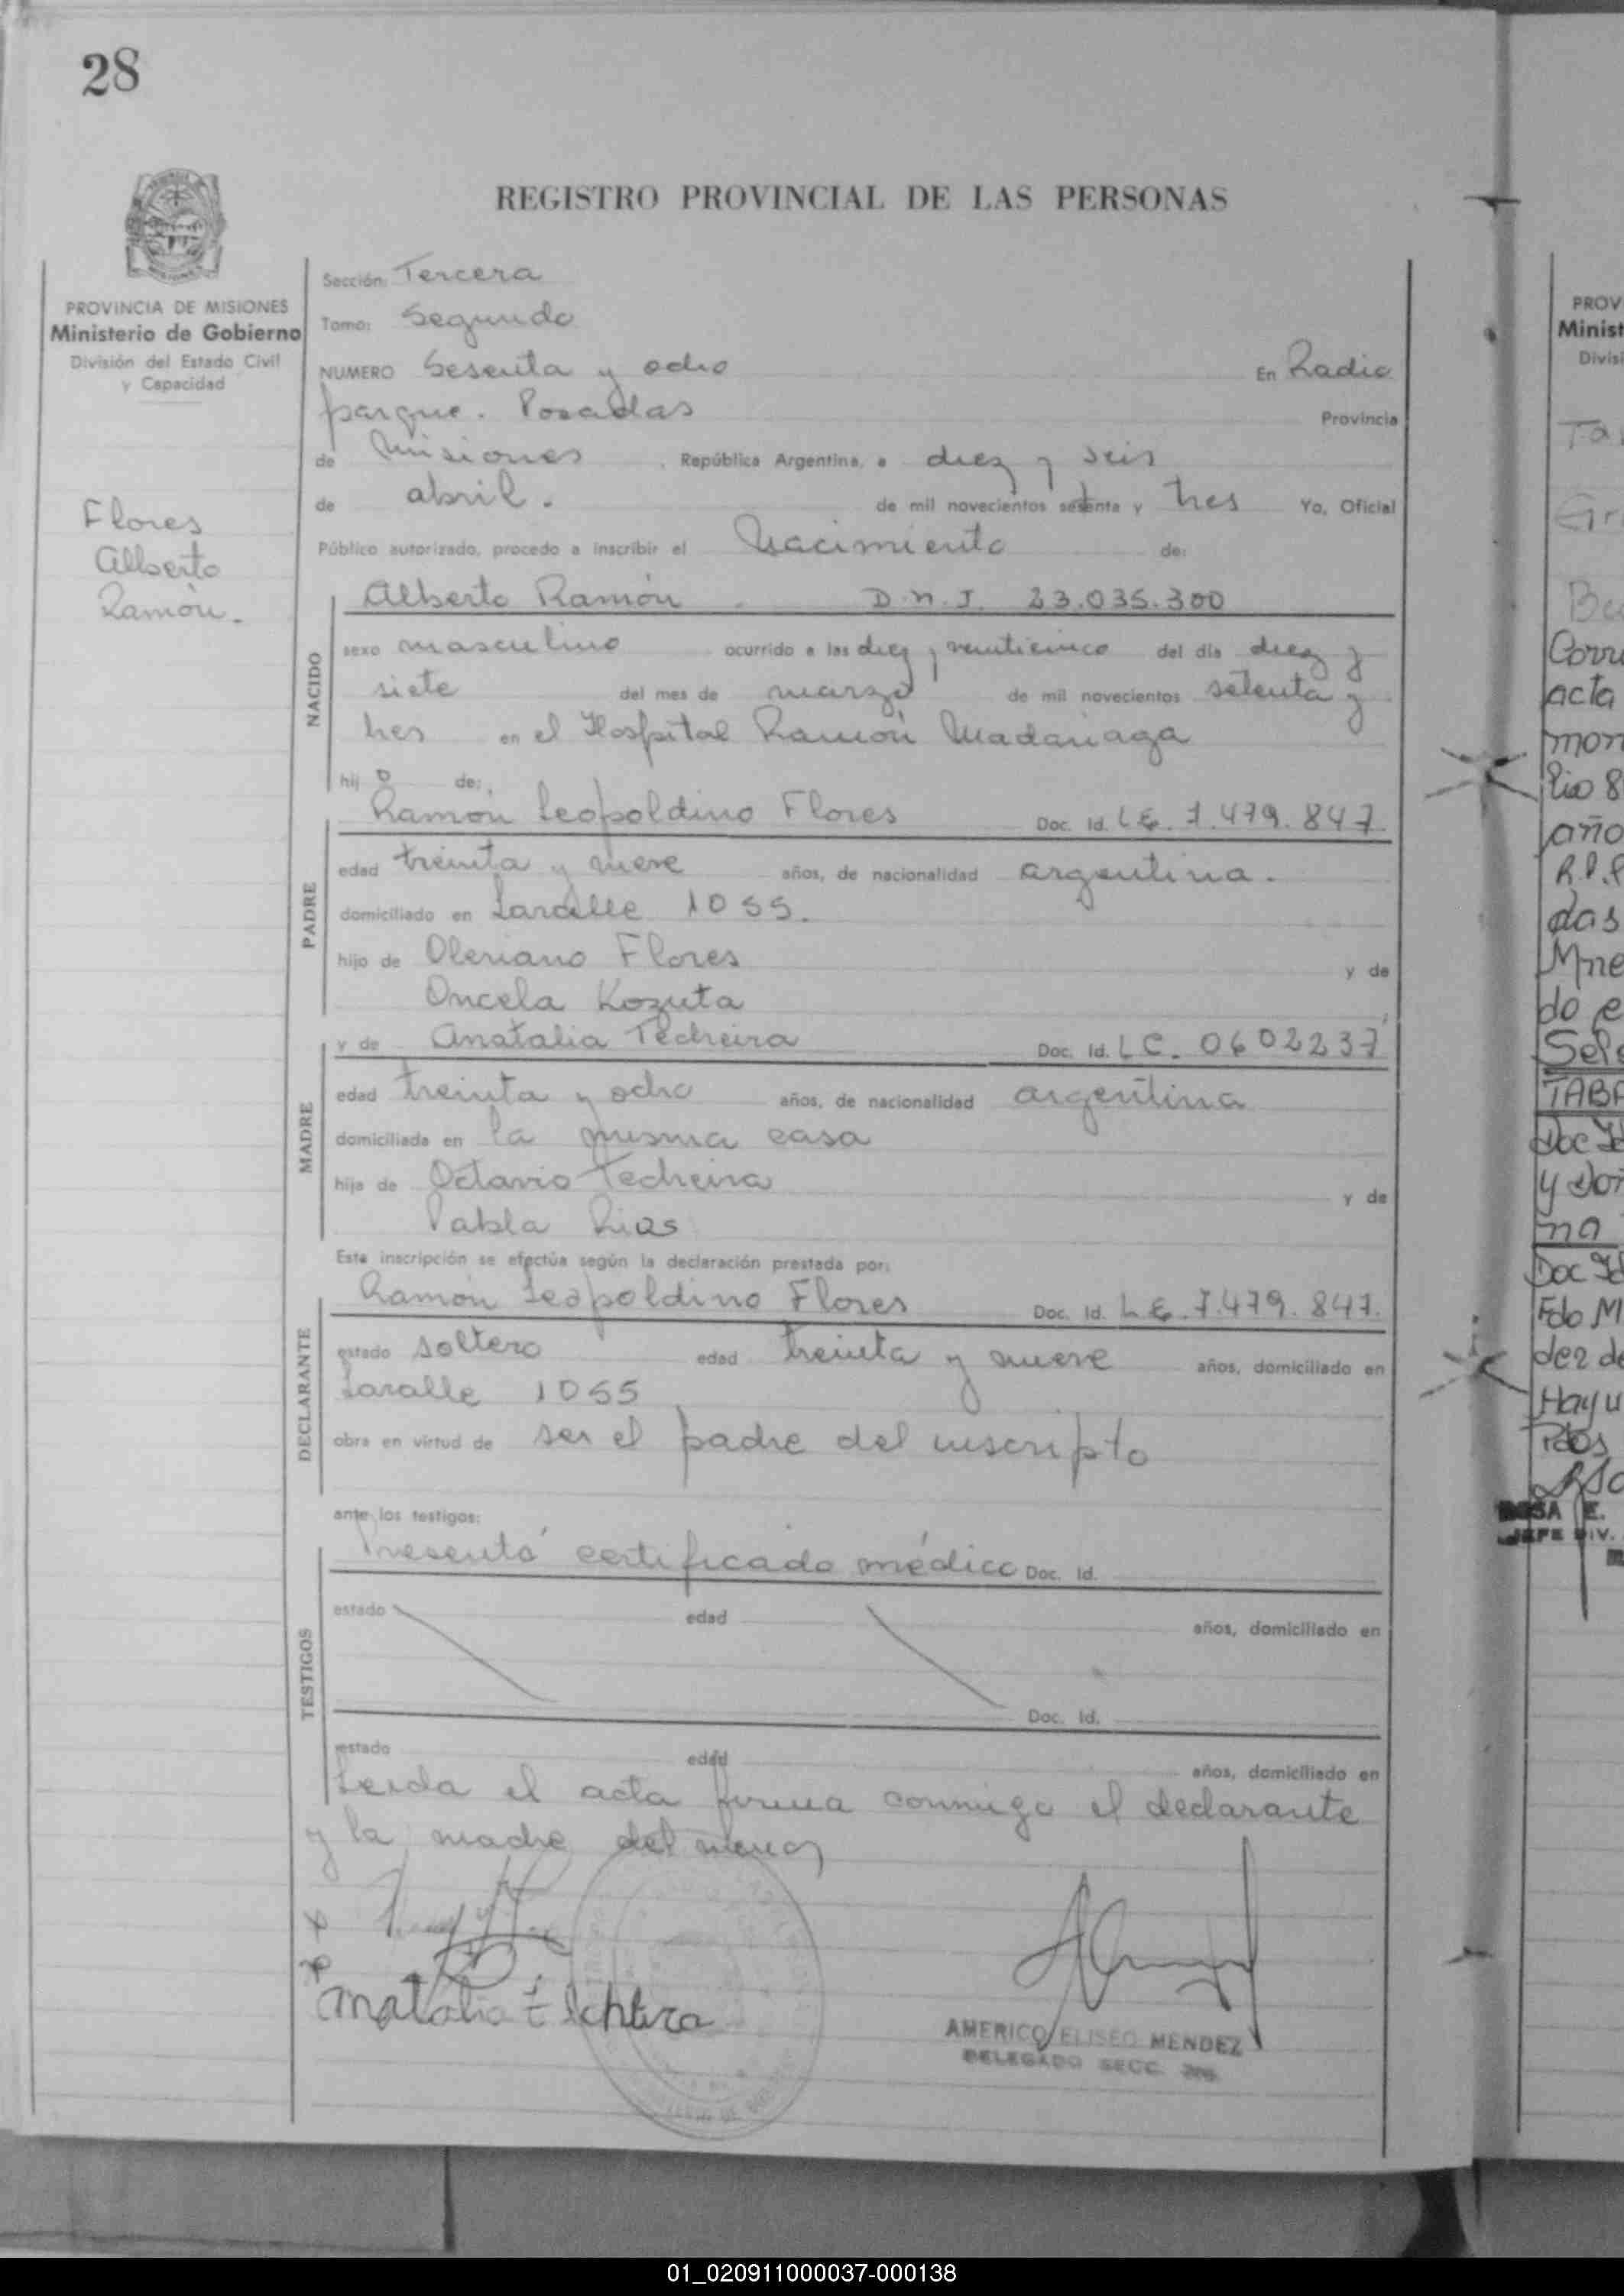 28
REGISTRO PROVINCIAL DE LAS PERSONAS
PROVINCIA DE MISIONES
Ministerio de Gobierno
División del Estado Civil
y Capacidad
Flores
Alberto
Ramón.
Sección: Tercera
Tomo: Segundo
NUMERO Sesenta y ocho En Radio
parque. Posadas Provincia
de Misiones, República Argentina, a diez y seis
de abril. de mil novecientos setenta y tres Yo, Oficial
Público autorizado, procedo a inscribir el Nacimiento de:
NACIDO
Alberto Ramón D.N.I. 23.035.300
sexo masculino ocurrido a las diez y veinticinco del día diez y
siete del mes de marzo de mil novecientos setenta y
tres en el Hospital Ramón Madariaga
hijo de:
PADRE
Ramón Leopoldino Flores Doc. Id. L.E. 7.479.847
edad treinta y nueve años, de nacionalidad argentina.
domiciliado en Lavalle 1055.
hijo de Oleriano Flores y de
Oncela Kozuta
MADRE
y de Anatalia Techeira Doc. Id. L.C. 0602237
edad treinta y ocho años, de nacionalidad argentina
domiciliada en la misma casa
hija de Octavio Techeira y de
Pabla Rios
Esta inscripción se efectúa según la declaración prestada por:
DECLARANTE
Ramón Leopoldino Flores Doc. Id. L.E. 7.479.847.
estado soltero edad treinta y nueve años, domiciliado en
Lavalle 1055
obra en virtud de ser el padre del inscripto
ante los testigos:
TESTIGOS
Presentó certificado médico Doc. Id.
estado edad años, domiciliado en
Doc. Id.
estado edad años, domiciliado en
Leida el acta firma conmigo el declarante
y la madre del menor
AMERICO ELISEO MENDEZ
DELEGADO SECC.
PROV
Minist
Divisi
Corru
acta
mon
Lio 8
año
R.P.P
das
Mne
do e
Sels
TABA
Doc Id
y Don
na
Doc Id
Fdo M
dez de
Hay u
Pdos
ROSA E.
JEFE DIV.
01_020911000037-000138